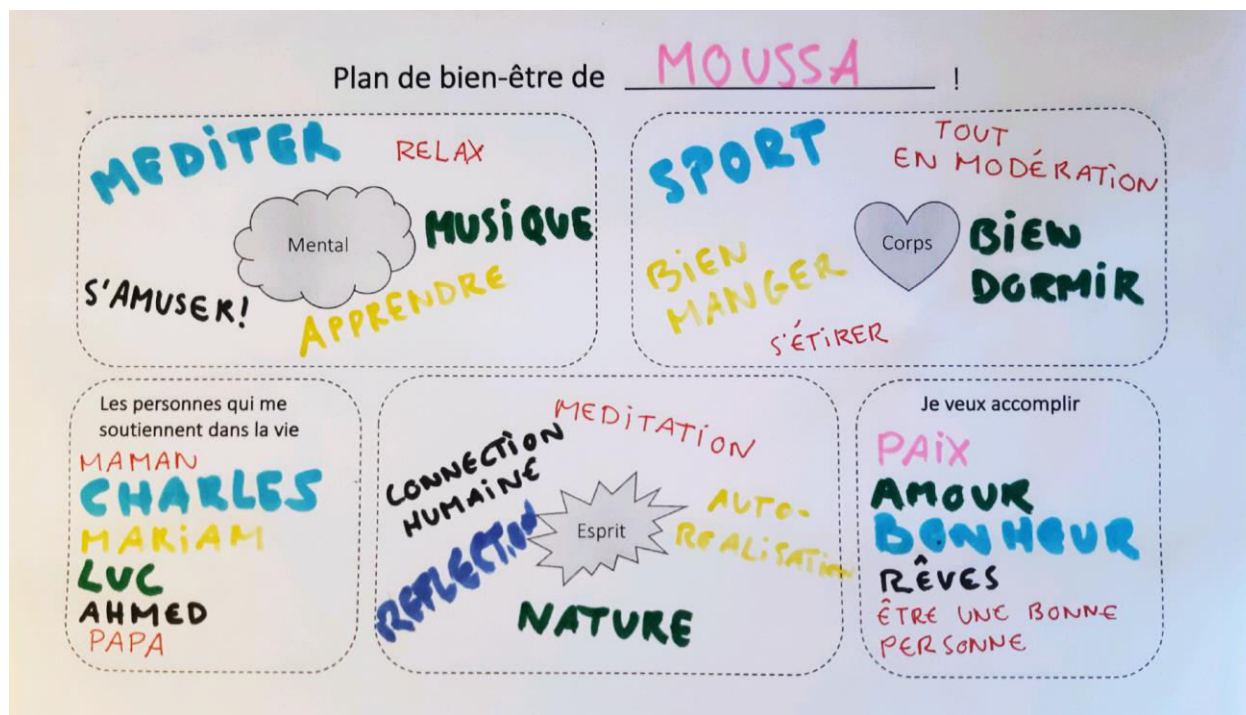 Plan de bien-être de MOUSSA !
MEDiTER
RELAX
Mental
MUSiQUE
S'AMUSER!
APPRENDRE
SPORT
TOUT
EN MODÉRATiON
Corps
BiEN
MANGER
BiEN
DORMiR
S'ÉTiRER
Les personnes qui me
soutiennent dans la vie
MAMAN
CHARLES
MARiAM
LUC
AHMED
PAPA
MEDiTATiON
CONNECTiON
HUMAiNE
REFLECTiON
Esprit
AUTO-
REALiSATiON
NATURE
Je veux accomplir
PAiX
AMOUR
BONHEUR
RÊVES
ÊTRE UNE BONNE
PERSONNE